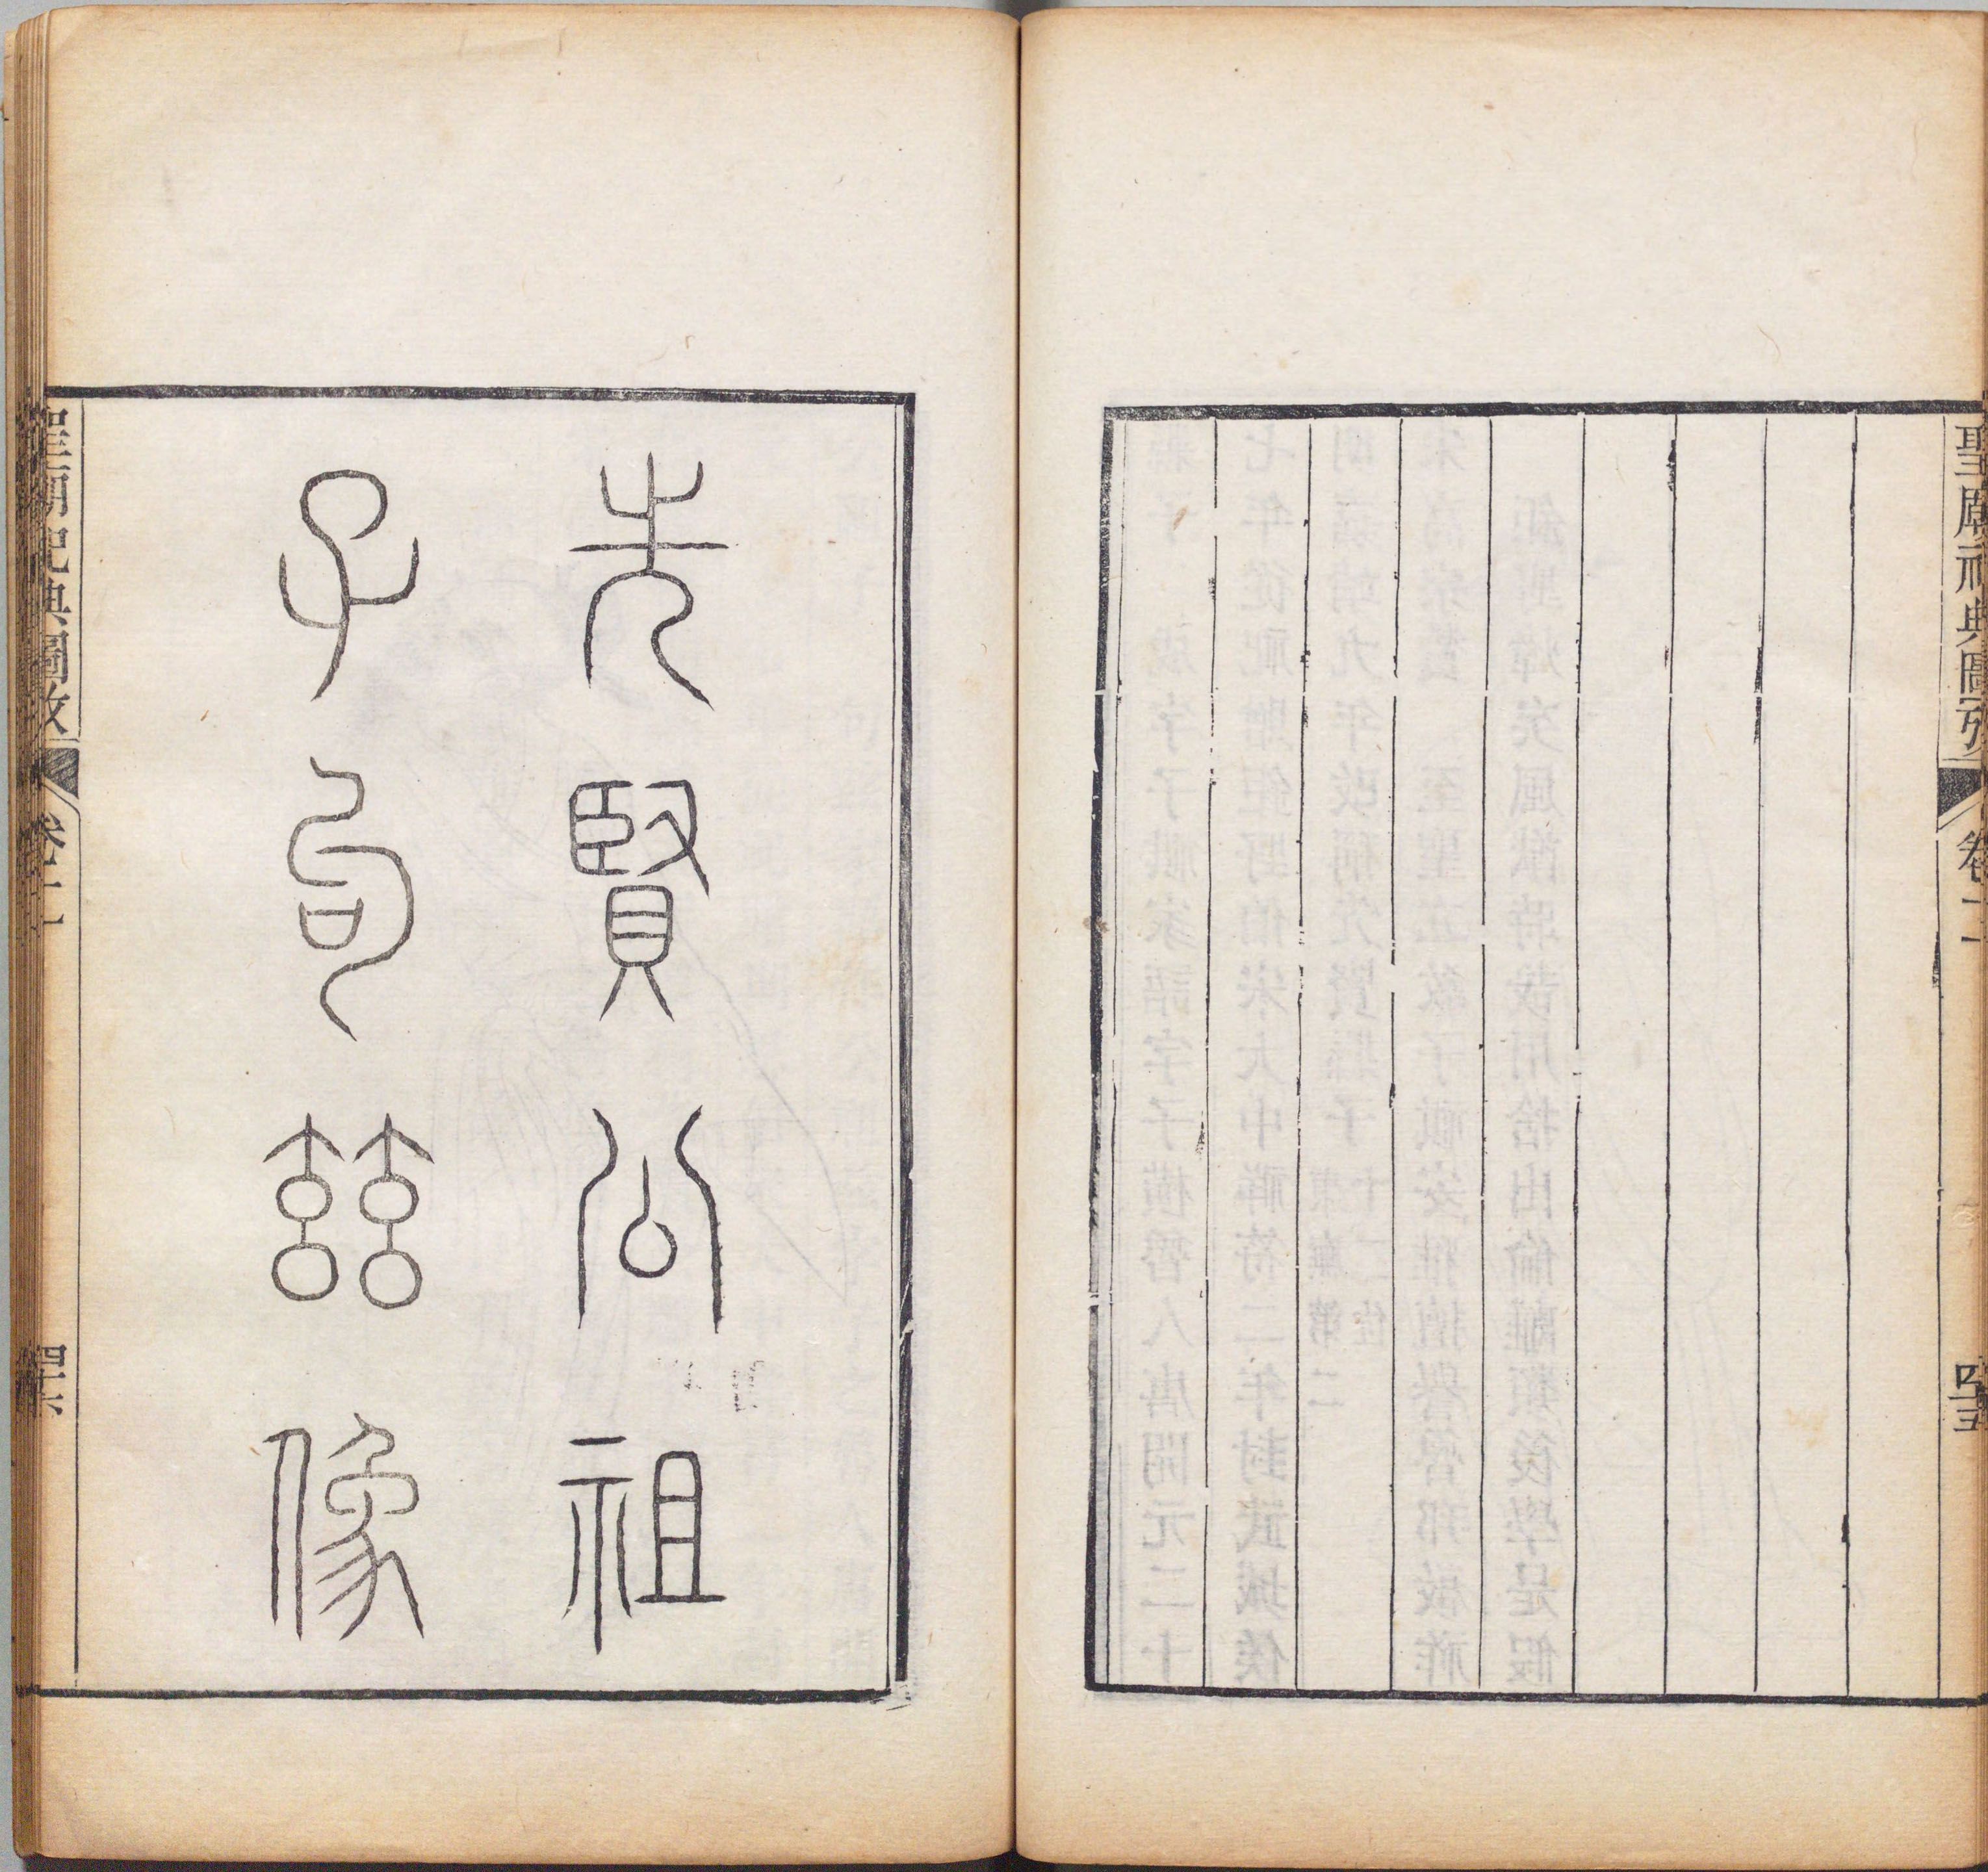 聖廟祀典圖攷
卷二
先賢公祖
子句茲像
聖廟祀典圖攷
卷二